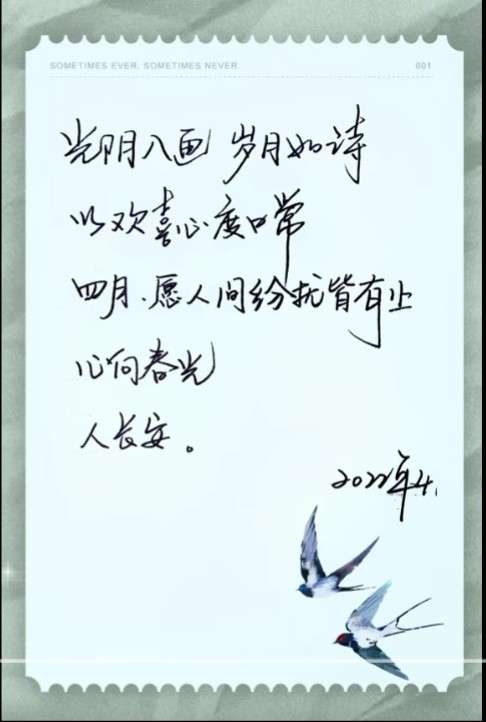 SOMETIMES EVER, SOMETIMES NEVER. 001
光阴入画 岁月如诗
以欢喜心度日常
四月.愿人间纷扰皆有止
心向春光
人长安。
2022年4.